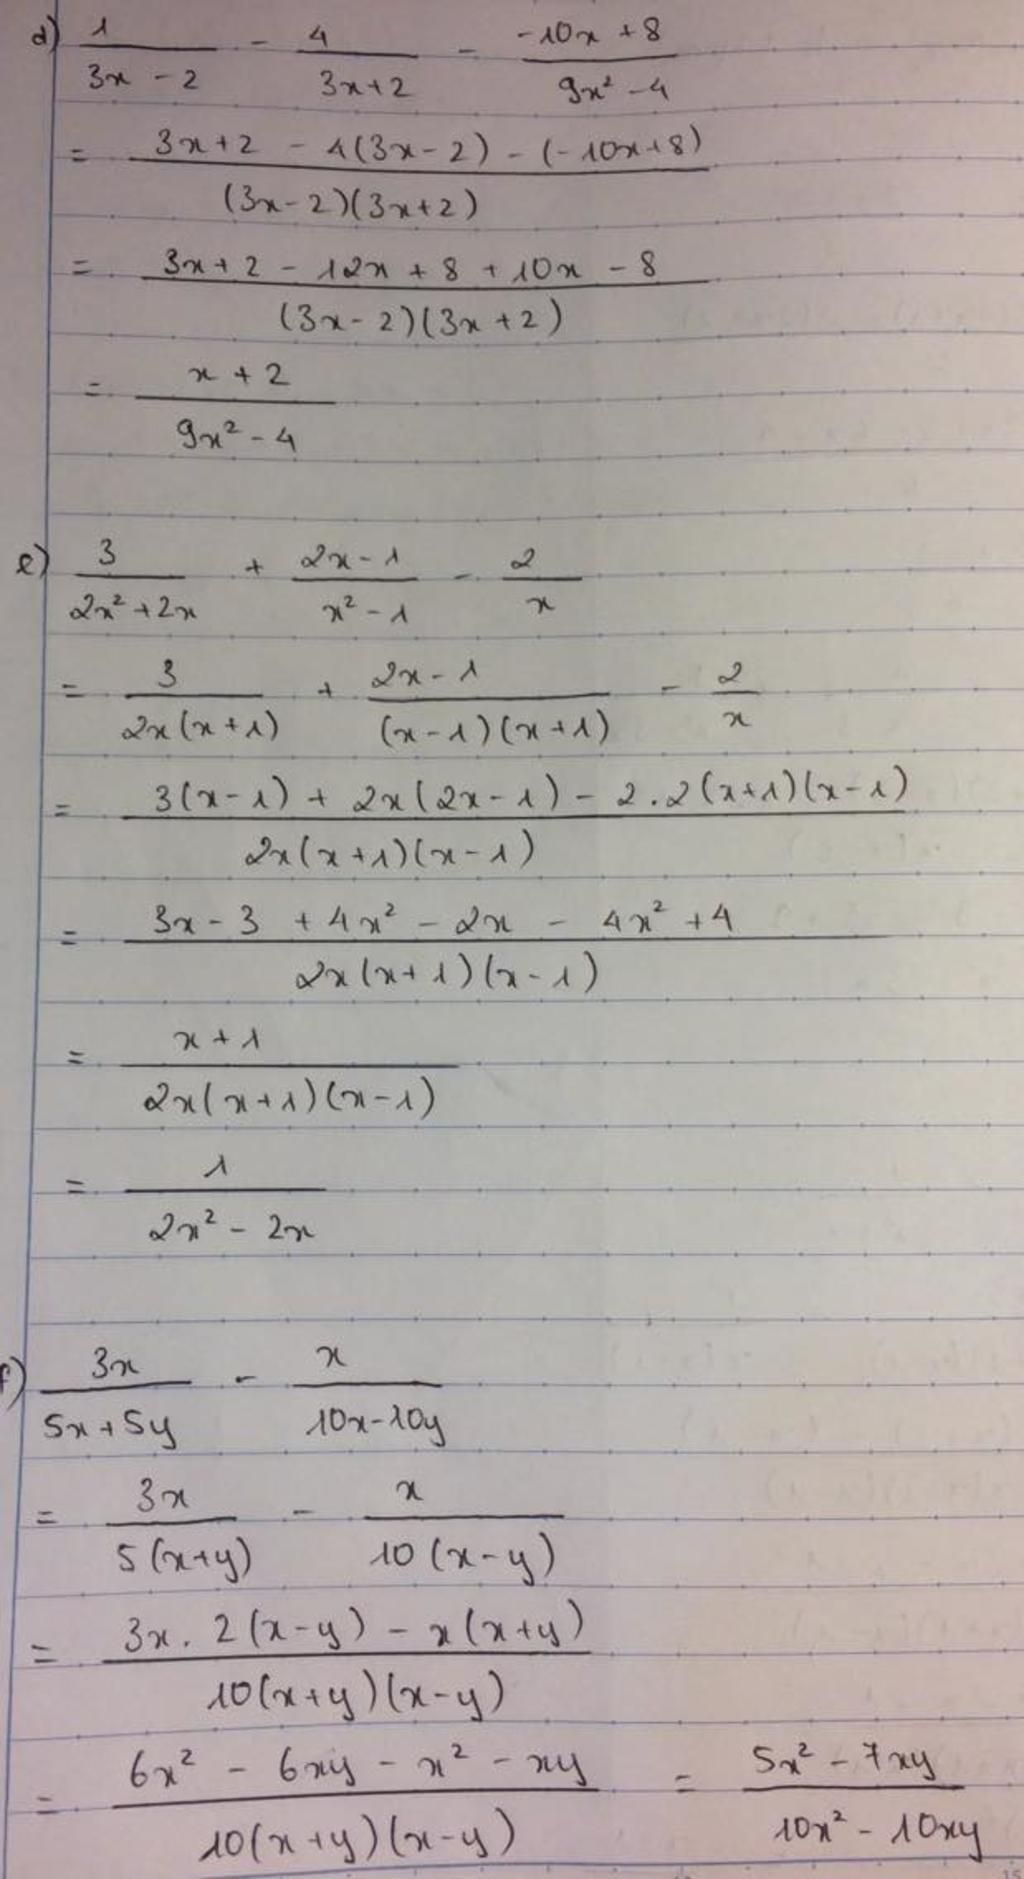 d) 1/(3x - 2) - 4/(3x+2) - (-10x + 8)/(9x² - 4)
= (3x+2 - 4(3x-2) - (-10x+8))/((3x-2)(3x+2))
= (3x+2 - 12x + 8 + 10x - 8)/((3x-2)(3x+2))
= (x + 2)/(9x² - 4)
e) 3/(2x² + 2x) + (2x - 1)/(x² - 1) - 2/x
= 3/(2x(x+1)) + (2x - 1)/((x-1)(x+1)) - 2/x
= (3(x-1) + 2x(2x-1) - 2.2(x+1)(x-1))/(2x(x+1)(x-1))
= (3x - 3 + 4x² - 2x - 4x² + 4)/(2x(x+1)(x-1))
= (x + 1)/(2x(x+1)(x-1))
= 1/(2x² - 2x)
f) 3x/(5x+5y) - x/(10x-10y)
= 3x/(5(x+y)) - x/(10(x-y))
= (3x. 2(x-y) - x(x+y))/(10(x+y)(x-y))
= (6x² - 6xy - x² - xy)/(10(x+y)(x-y)) = (5x² - 7xy)/(10x² - 10xy)